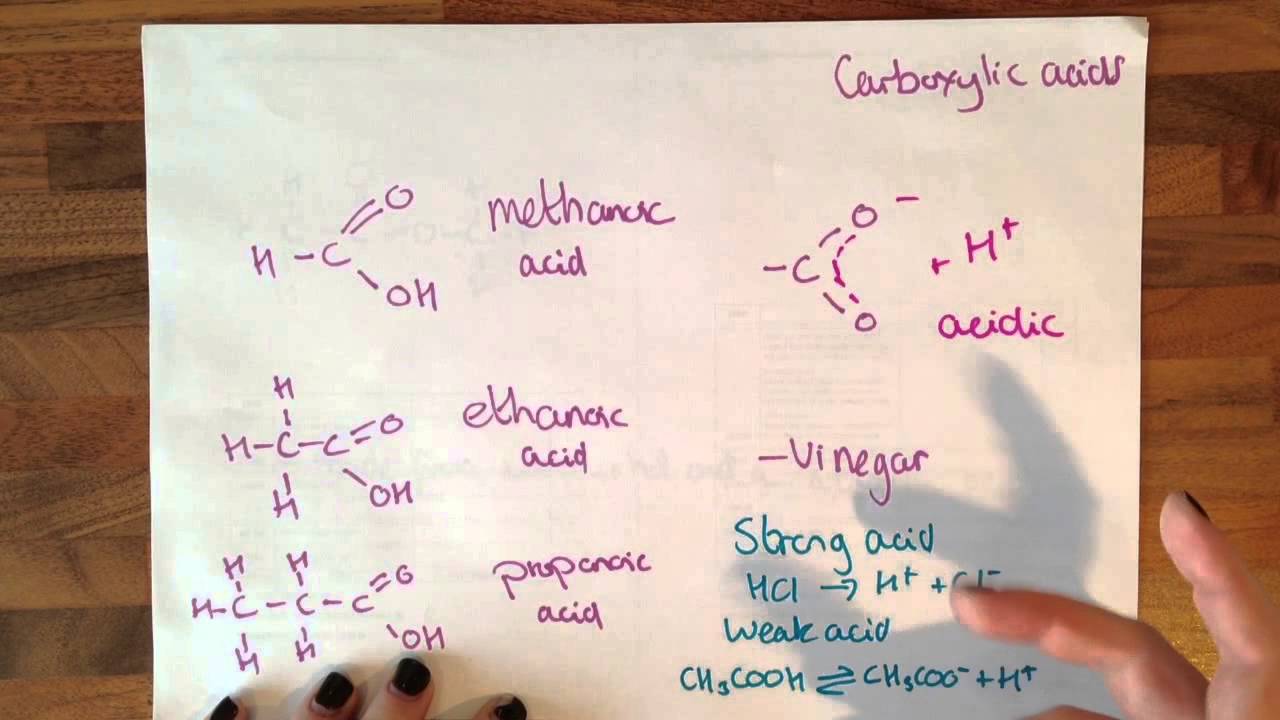 Carboxylic acids
H – C
O
OH
methanoic
acid
– C
O –
O
+ H⁺
acidic
H
H – C – C = O
H
OH
ethanoic
acid
– Vinegar
H H
H – C – C – C = O
H H
OH
propanoic
acid
Strong acid
HCl → H⁺ + Cl⁻
Weak acid
CH₃COOH ⇌ CH₃COO⁻ + H⁺